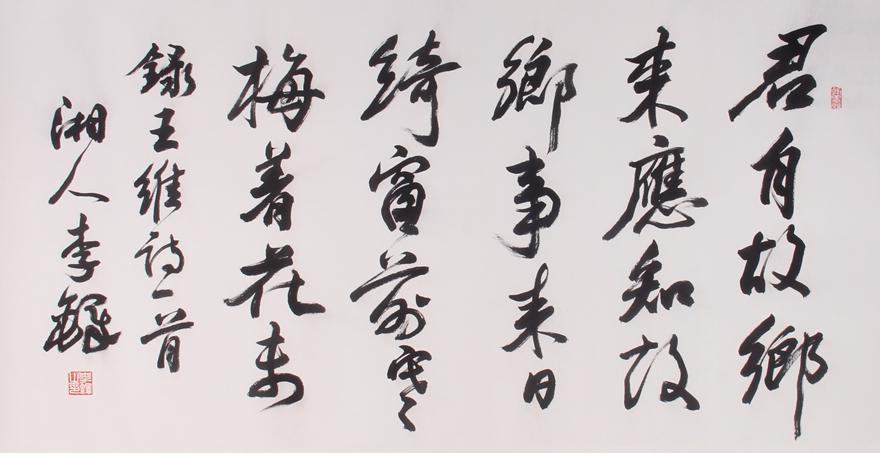 君自故鄉
來應知故
鄉事来日
綺窗前寒
梅着花未
録王維诗一首
湘人李鐸